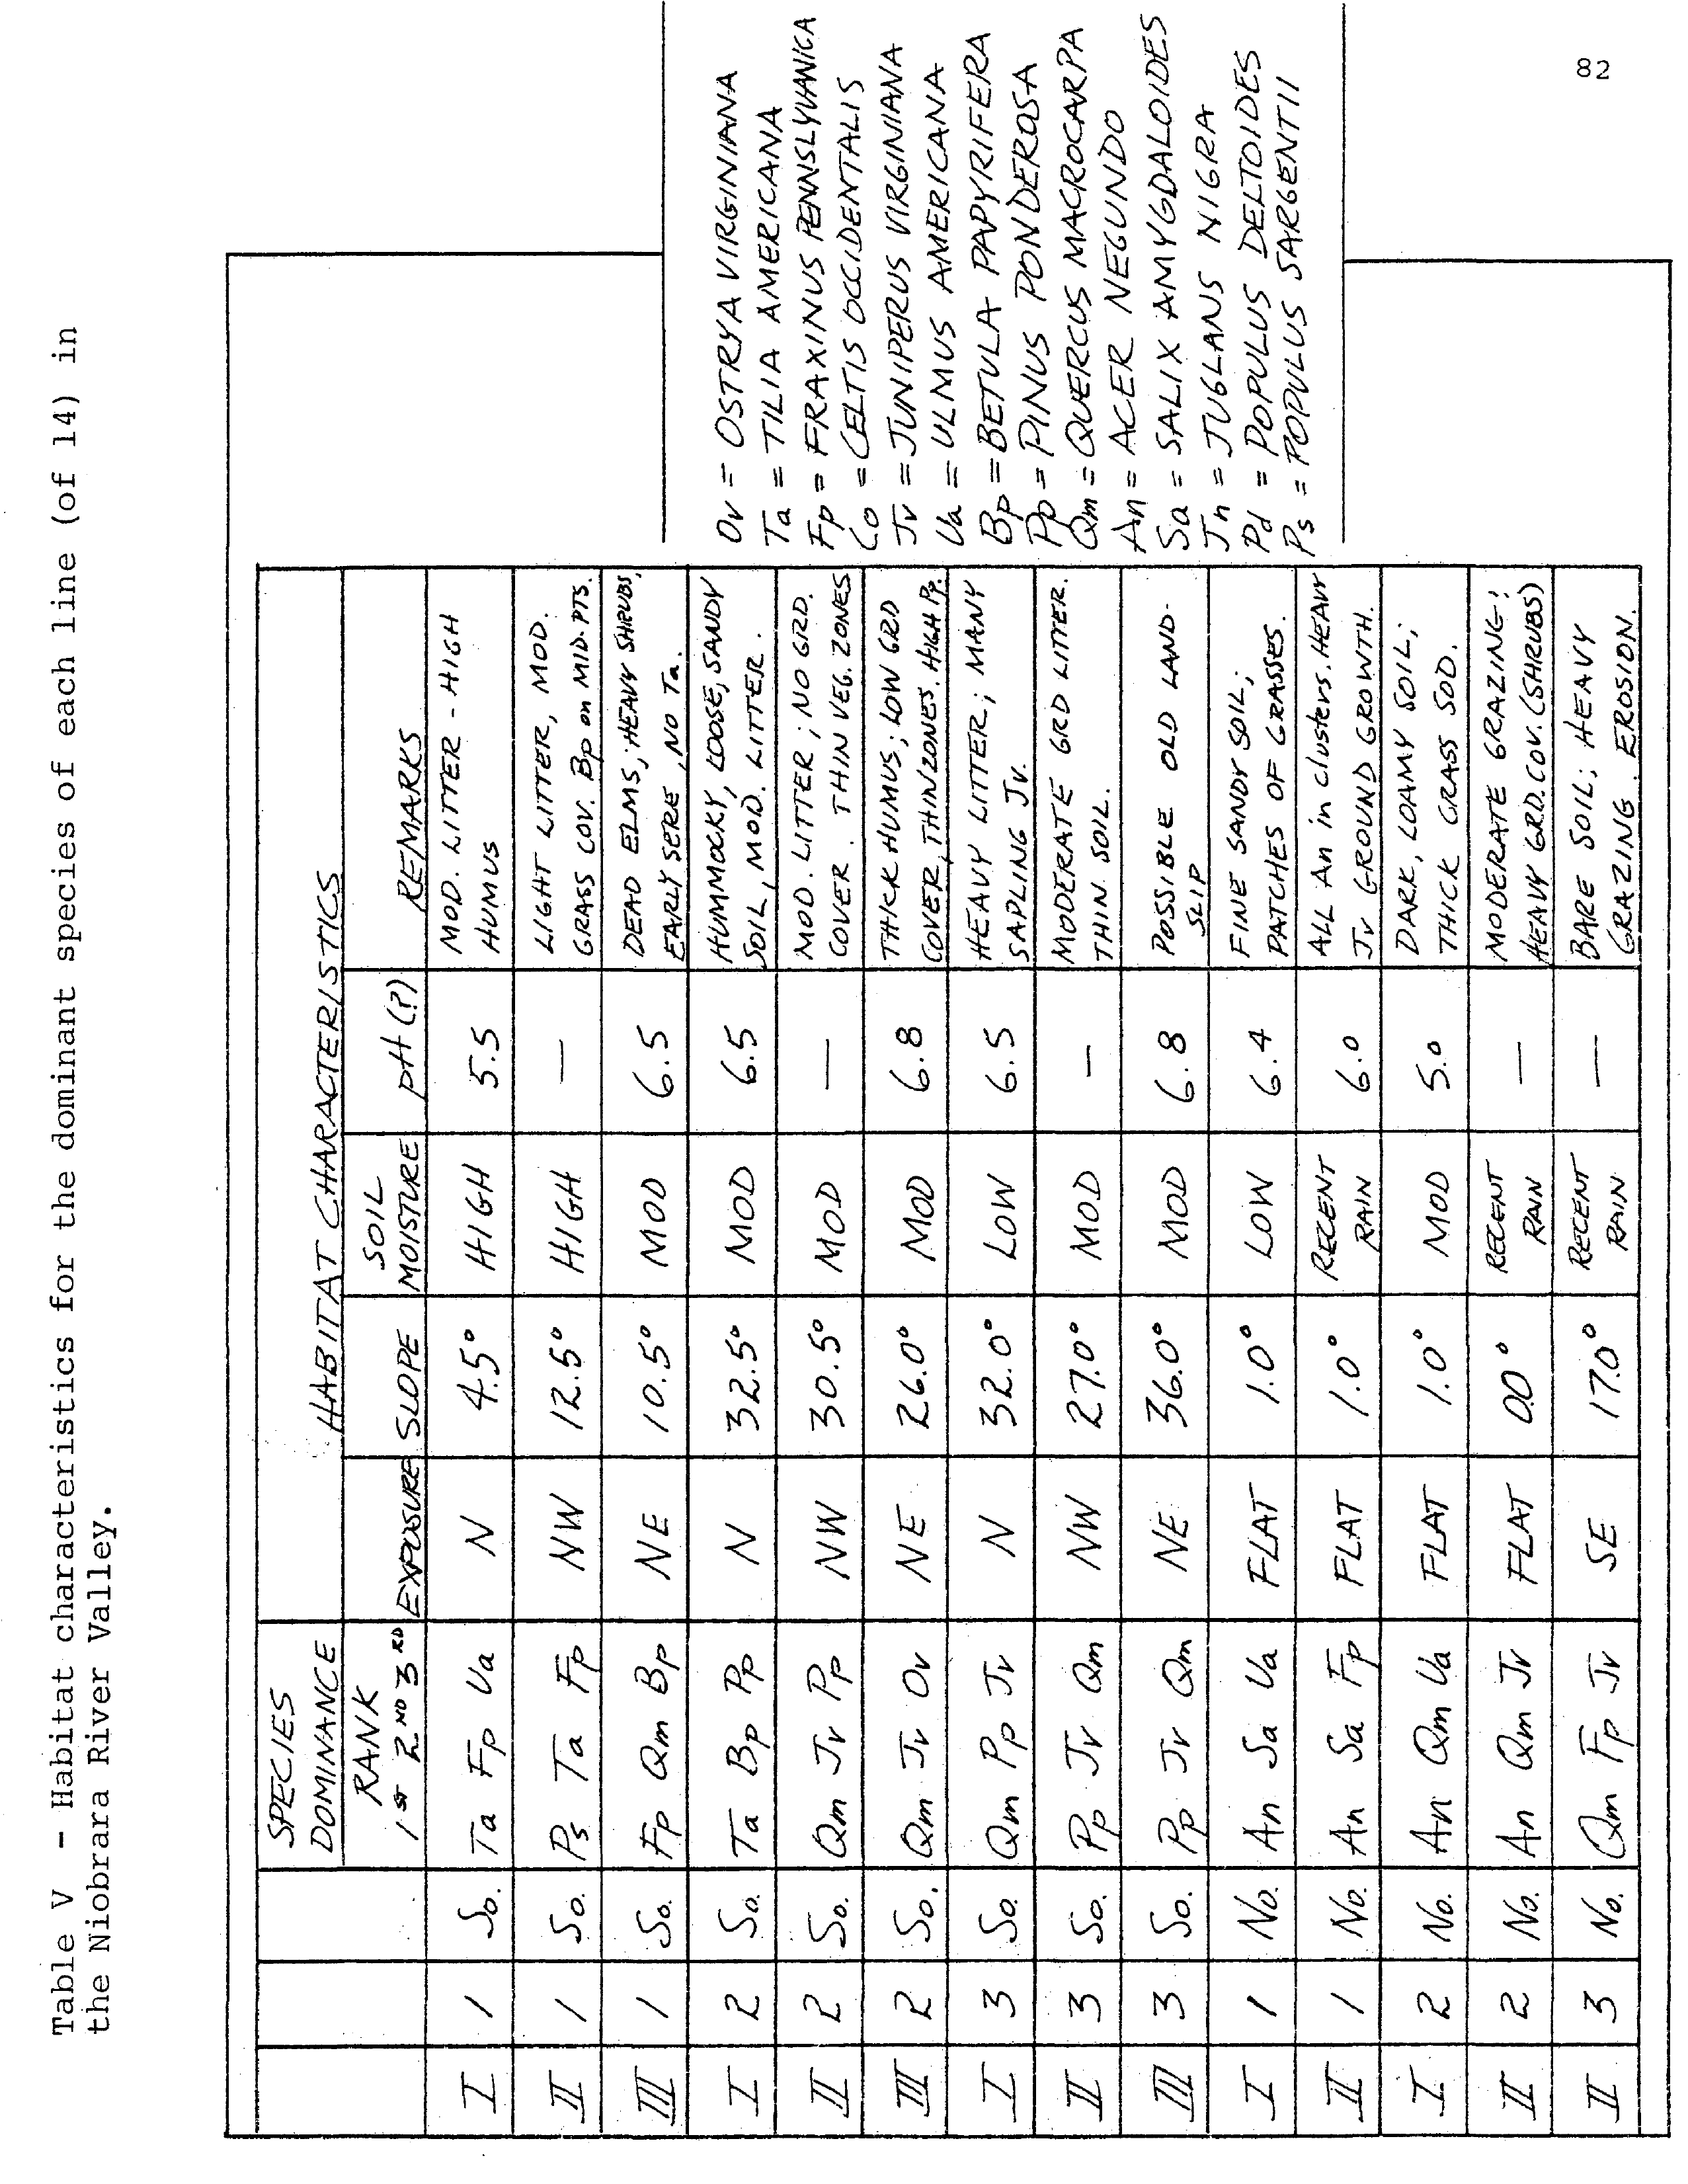 Table V - Habitat characteristics for the dominant species of each line (of 14) in
the Niobrara River Valley.
SPECIES DOMINANCE HABITAT CHARACTERISTICS
RANK 1ST 2ND 3RD EXPOSURE SLOPE SOIL MOISTURE pH(?) REMARKS
I 1 So. Ta Fp Ua N 4.5° HIGH 5.5 MOD. LITTER - HIGH
HUMUS
II 1 So. Ps Ta Fp NW 12.5° HIGH — LIGHT LITTER, MOD.
GRASS COV. Bp on MID. PTS.
III 1 So. Fp Qm Bp NE 10.5° MOD 6.5 DEAD ELMS; HEAVY SHRUBS,
EARLY SERE, NO Ta.
I 2 So. Ta Bp Pp N 32.5° MOD 6.5 HUMMOCKY, LOOSE, SANDY
SOIL, MOD. LITTER.
II 2 So. Qm Jv Pp NW 30.5° MOD — MOD. LITTER; NO GRD.
COVER. THIN VEG. ZONES
III 2 So. Qm Jv Ov NE 26.0° MOD 6.8 THICK HUMUS; LOW GRD
COVER, THIN ZONES. HIGH Pp.
I 3 So. Qm Pp Jv N 32.0° LOW 6.5 HEAVY LITTER; MANY
SAPLING Jv.
II 3 So. Pp Jv Qm NW 27.0° MOD — MODERATE GRD LITTER.
THIN SOIL.
III 3 So. Pp Jv Qm NE 36.0° MOD 6.8 POSSIBLE OLD LAND-
SLIP
I 1 No. An Sa Ua FLAT 1.0° LOW 6.4 FINE SANDY SOIL;
PATCHES OF GRASSES.
II 1 No. An Sa Fp FLAT 1.0° RECENT RAIN 6.0 ALL An in clusters. HEAVY
Jv GROUND GROWTH.
I 2 No. An Qm Ua FLAT 1.0° MOD 5.0 DARK, LOAMY SOIL;
THICK GRASS SOD.
II 2 No. An Qm Jv FLAT 0.0° RECENT RAIN — MODERATE GRAZING;
HEAVY GRD. COV. (SHRUBS)
II 3 No. Qm Fp Jv SE 17.0° RECENT RAIN — BARE SOIL; HEAVY
GRAZING. EROSION.
Ov = OSTRYA VIRGINIANA
Ta = TILIA AMERICANA
Fp = FRAXINUS PENNSLYVANICA
Co = CELTIS OCCIDENTALIS
Jv = JUNIPERUS VIRGINIANA
Ua = ULMUS AMERICANA
Bp = BETULA PAPYRIFERA
Pp = PINUS PONDEROSA
Qm = QUERCUS MACROCARPA
An = ACER NEGUNDO
Sa = SALIX AMYGDALOIDES
Jn = JUGLANS NIGRA
Pd = POPULUS DELTOIDES
Ps = POPULUS SARGENTII
82